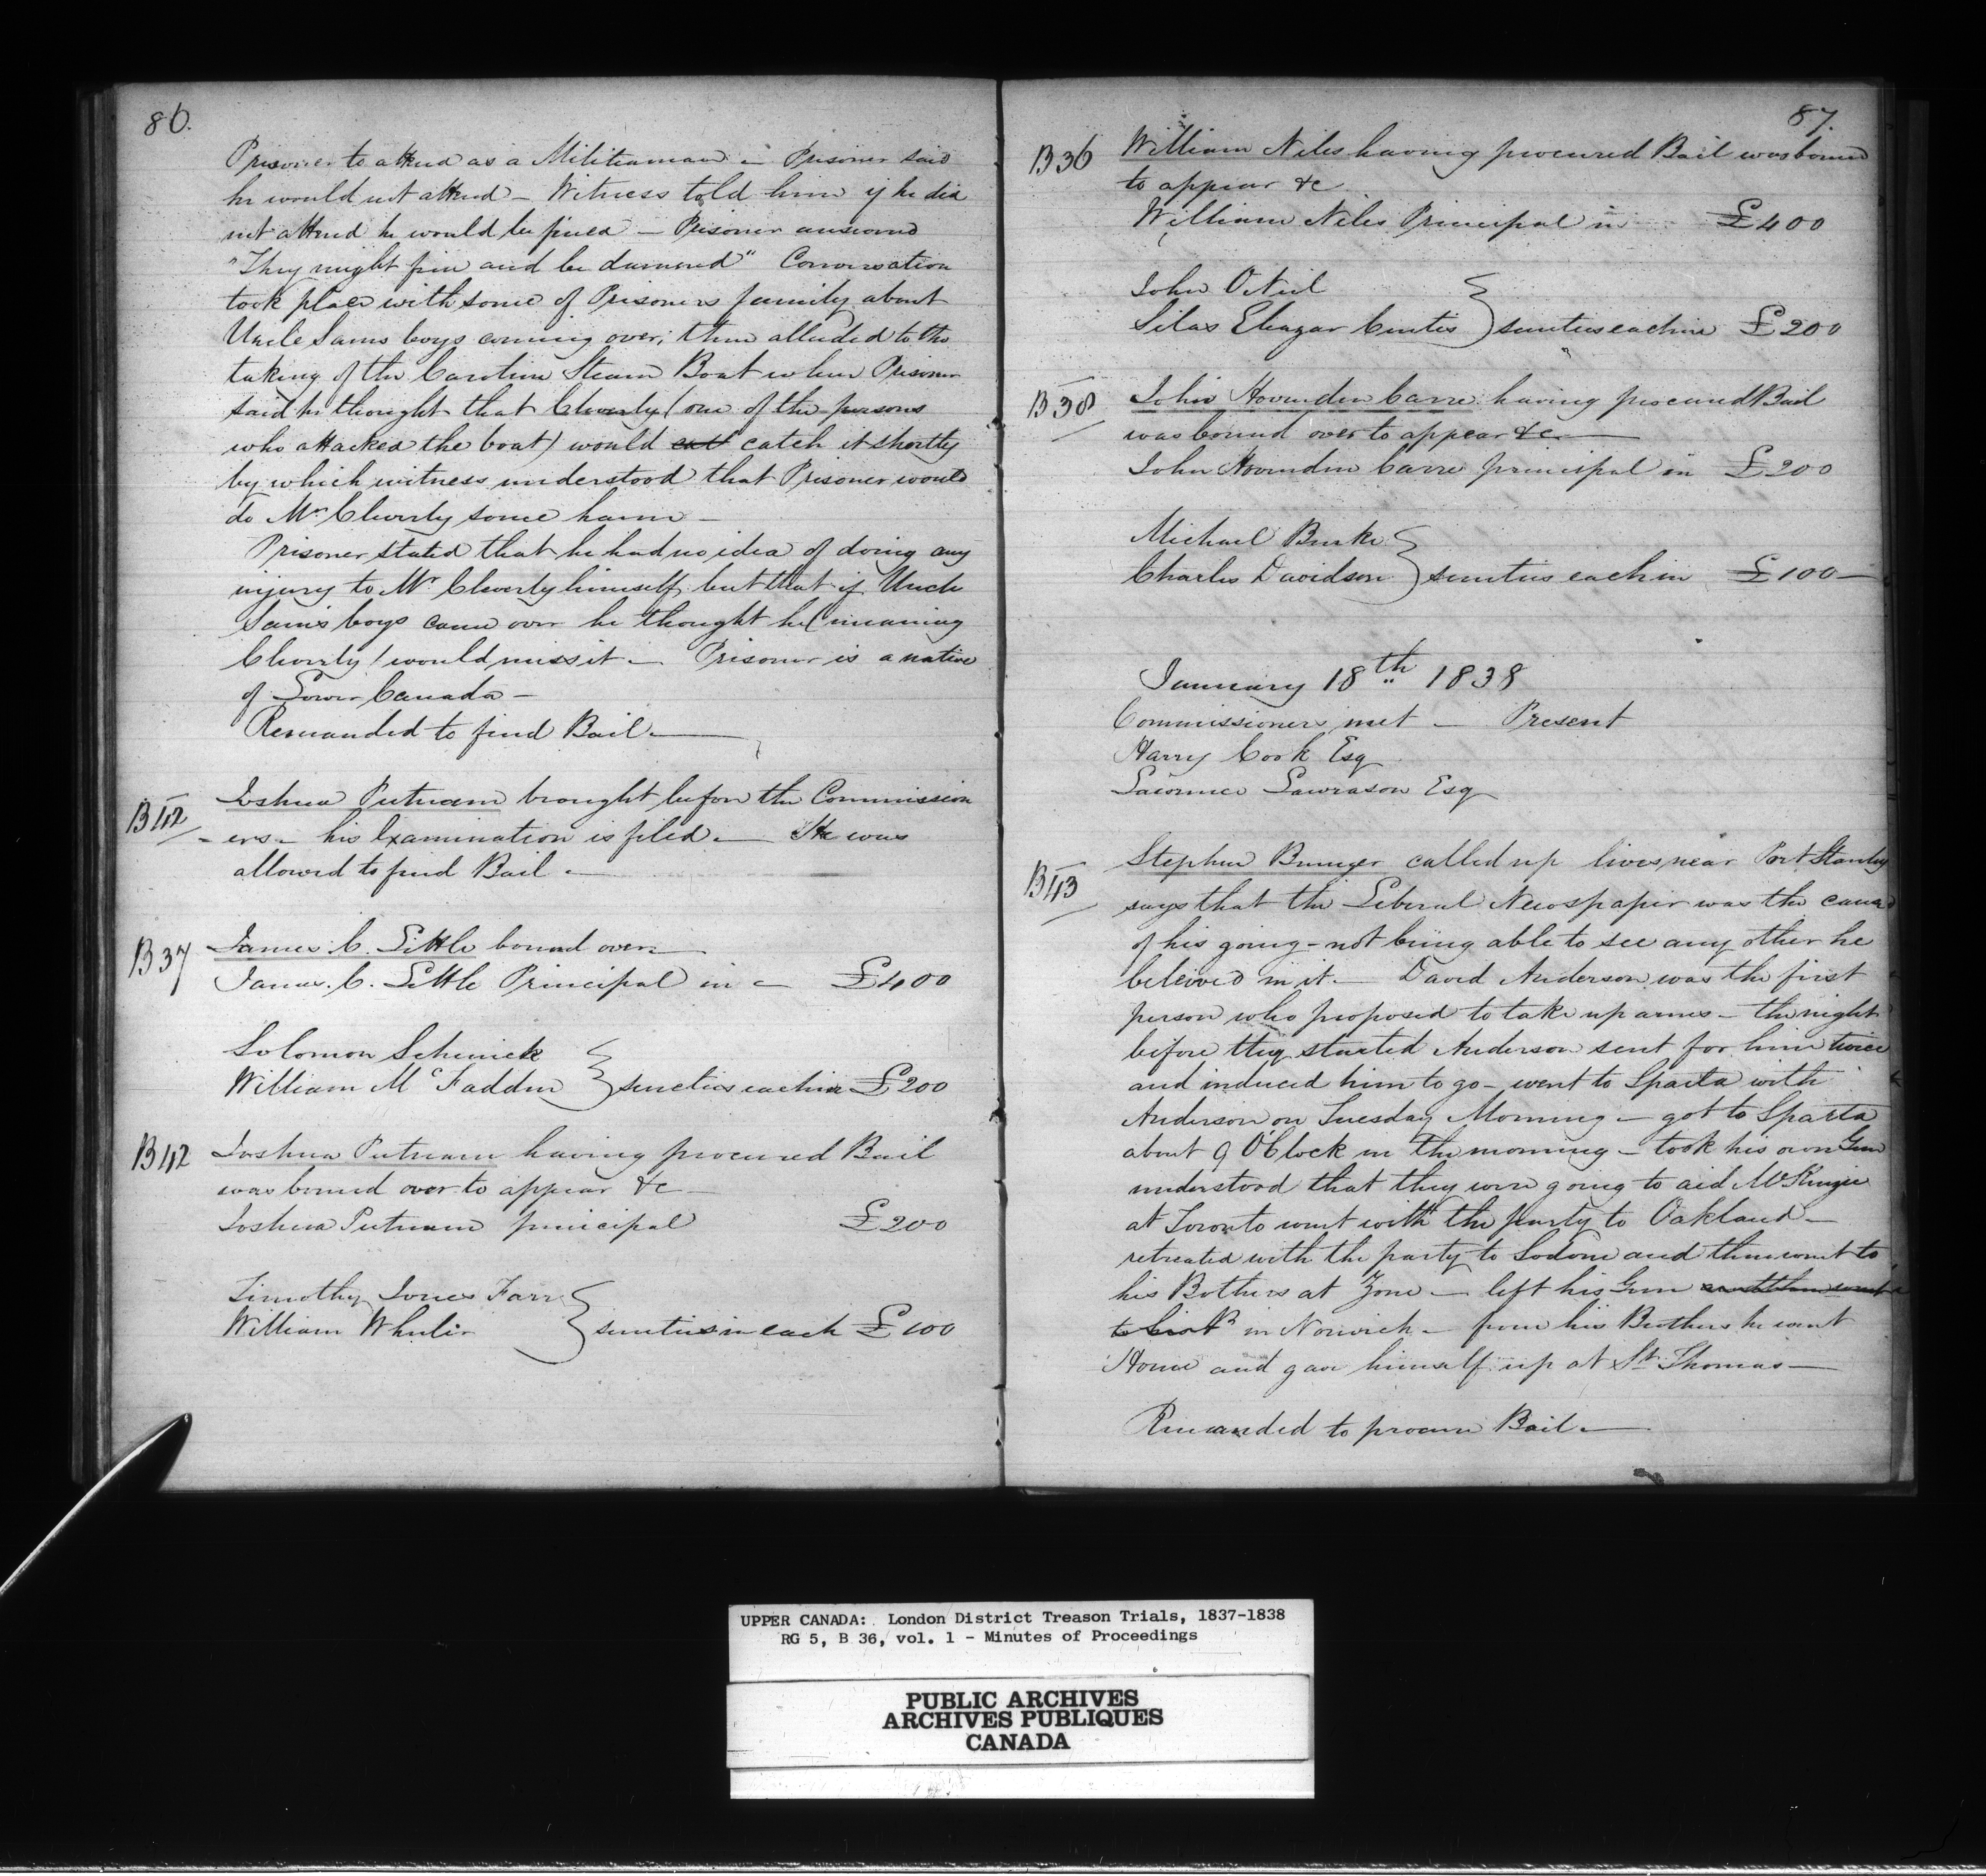 86.
Prisoner to attend as a Militiaman – Prisoner said
he would not attend – Witness told him if he did
not attend he would be fined – Prisoner answered
"They might fine and be damned" Conversation
took place with some of Prisoners family about
Uncle Sams boys coming over, then alluded to the
taking of the Caroline Steam Boat when Prisoner
said he thought that Cleverly (one of the persons
who attacked the boat) would catch it shortly
by which witness understood that Prisoner would
do Mr Cleverly some harm –
Prisoner stated that he had no idea of doing any
injury to Mr Cleverly himself, but that if Uncle
Sam's boys came over he thought he (meaning
Cleverly) would miss it – Prisoner is a native
of Lower Canada –
Remanded to find Bail –
B42 Joshua Putnam brought before the Commission
- ers – his Examination is filed – He was
allowed to find Bail –
B37 James C. Little bound over
James. C. Little Principal in – £400
Solomon Schenick
William McFadden } sureties each in £200
B42 Joshua Putnam having procured Bail
was bound over to appear &c –
Joshua Putnam principal £200
Timothy Jones Farr
William Whelir } sureties in each £100
87.
B36 William Niles having procured Bail was bound
to appear &c
William Niles Principal in £400
John ONeil
Silas Eleazar Curtis } sureties each in £200
B38 John Hovenden Carre having procured Bail
was bound over to appear &c –
John Hovenden Carre principal in £200
Michael Burke
Charles Davidson } sureties each in £100 –
January 18th 1838
Commissioners met – Present
Harry Cook Esq
Lawrence Lawrason Esq
B43 Stephen Bunger called up lives near Port Stanley
says that the Liberal Newspaper was the cause
of his going – not being able to see any other he
beleived in it – David Anderson was the first
person who proposed to take up arms – the night
before they started Anderson sent for him twice
and induced him to go – went to Sparta with
Anderson on Tuesday Morning – got to Sparta
about 9 OClock in the morning – took his own Gun
understood that they were going to aid McKenzie
at Toronto went with the party to Oakland –
retreated with the party to Sodom and then went to
his Bothers at Zone – left his Gun
in Norwich – from his Brothers he went
Home and gave himself up at St. Thomas –
Remanded to procure Bail –
UPPER CANADA: London District Treason Trials, 1837-1838
RG 5, B 36, vol. 1 - Minutes of Proceedings
PUBLIC ARCHIVES
ARCHIVES PUBLIQUES
CANADA